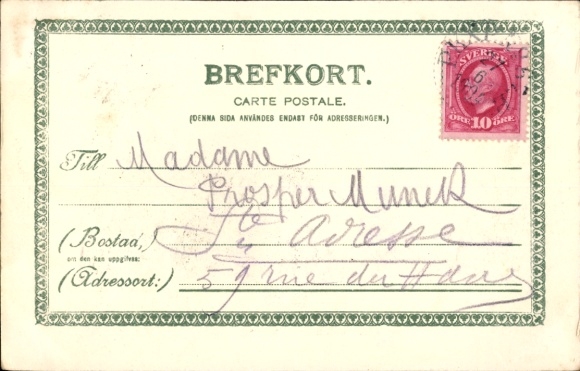 BREFKORT.
CARTE POSTALE.
(DENNA SIDA ANVÄNDES ENDAST FÖR ADRESSERINGEN.)
SVERIGE
ÖRE 10 ÖRE
Till Madame
Prosper Munck
Ste Adresse
(Bostad,)
om den kan uppgifvas:
(Adressort:) 59 rue du Havre